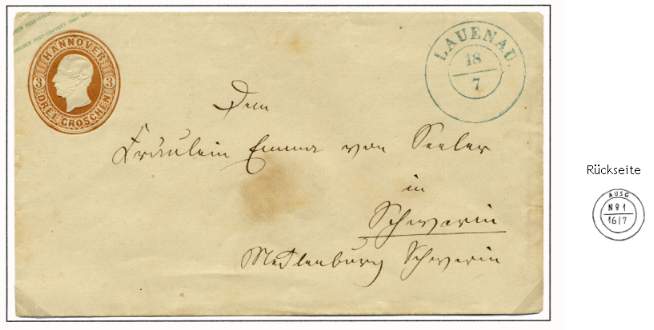 HANNOVER
3 3
DREI GROSCHEN
LAUENAU.
18
7
Dem
Fräulein Emma von Seeler
in
Schwerin
Mecklenburg Schwerin
Rückseite
AUSG
No 1
16|7